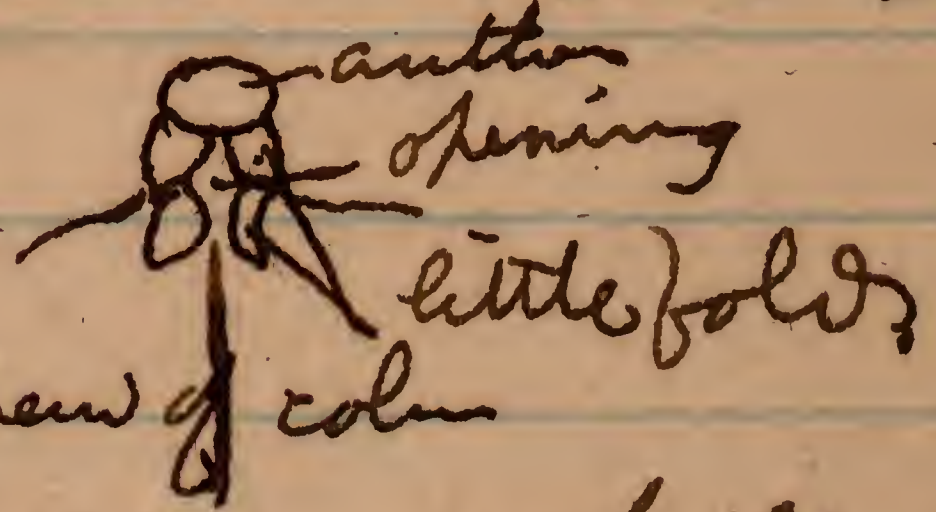 anther
opening
little folds
of colum